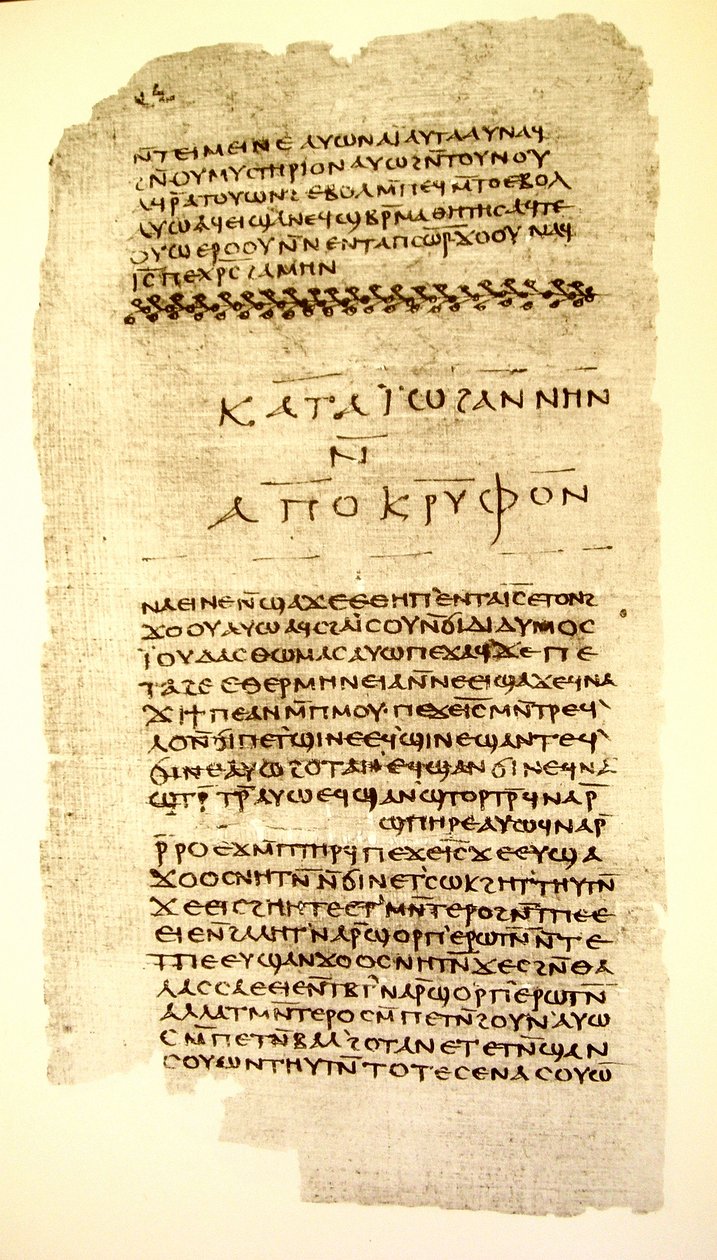 ⲛ̄ⲧⲉⲓⲙⲉⲓⲛⲉ ⲁⲩⲱ ⲛⲁⲓ̈ ⲁⲩⲧⲁⲁⲩ ⲛⲁϥ
ϩⲛ̄ⲟⲩⲙⲩⲥⲧⲏⲣⲓⲟⲛ ⲁⲩⲱ ϩⲛ̄ⲧⲟⲩⲛⲟⲩ
ⲁϥⲣ̄ⲁⲧⲟⲩⲱⲛϩ ⲉⲃⲟⲗ ⲙ̄ⲡⲉϥⲙ̄ⲧⲟ ⲉⲃⲟⲗ
ⲁⲩⲱ ⲁϥⲉⲓ ϣⲁⲛⲉϥϣⲃⲣ̄ⲙⲁⲑⲏⲧⲏⲥ ⲁϥⲧⲉ
ⲟⲩⲱ ⲉⲣⲟⲟⲩ ⲛ̄ⲛⲉⲛⲧⲁⲡⲥⲱ̄ⲣ̄ ϫⲟⲟⲩ ⲛⲁϥ
ⲓ̄ⲥ̄ ⲡⲉⲭⲣ̄ⲥ̄ ϩⲁⲙⲏⲛ
ⲕⲁⲧⲁ ⲓ̈ⲱϩⲁⲛⲛⲏⲛ
ⲛ̄
ⲁⲡⲟⲕⲣⲩⲫⲟⲛ
ⲛⲁⲉⲓ ⲛⲉ ⲛ̄ϣⲁϫⲉ ⲉⲑⲏⲡ' ⲉⲛⲧⲁⲓ̄ⲥ̄ ⲉⲧⲟⲛϩ
ϫⲟⲟⲩ ⲁⲩⲱ ⲁϥⲥϩⲁⲓ̈ⲥⲟⲩ ⲛ̄ϭⲓ ⲇⲓⲇⲩⲙⲟⲥ
ⲓ̈ⲟⲩⲇⲁⲥ ⲑⲱⲙⲁⲥ ⲁⲩⲱ ⲡⲉϫⲁϥ ϫⲉ ⲡⲉ
ⲧⲁϩⲉ ⲉⲑⲉⲣⲙⲏⲛⲉⲓⲁ ⲛ̄ⲛⲉⲉⲓϣⲁϫⲉ ϥⲛⲁ
ϫⲓ ϯⲡⲉ ⲁⲛ ⲙ̄ⲡⲙⲟⲩ· ⲡⲉϫⲉ ⲓ̄ⲥ̄ ⲙⲛ̄ⲧⲣⲉϥ'
ⲗⲟ ⲛ̄ϭⲓ ⲡⲉⲧ'ϣⲓⲛⲉ ⲉϥϣⲓⲛⲉ ϣⲁⲛⲧⲉϥ'
ϭⲓⲛⲉ ⲁⲩⲱ ϩⲟⲧⲁⲛ ⲉϥϣⲁⲛϭⲓⲛⲉ ϥⲛⲁ
ϣⲧⲣ̄ⲧⲣ̄ ⲁⲩⲱ ⲉϥϣⲁⲛϣⲧⲟⲣⲧⲣ̄ ϥⲛⲁⲣ̄
ϣⲡⲏⲣⲉ ⲁⲩⲱ ϥⲛⲁⲣ̄
ⲣ̄ⲣⲟ ⲉϫⲙ̄ ⲡⲧⲏⲣϥ ⲡⲉϫⲉ ⲓ̄ⲥ̄ ϫⲉ ⲉⲩϣⲁ
ϫⲟⲟⲥ ⲛⲏⲧⲛ̄ ⲛ̄ϭⲓ ⲛⲉⲧ'ⲥⲱⲕ ϩⲏⲧ' ⲧⲏⲩⲧⲛ̄
ϫⲉ ⲉⲓⲥϩⲏⲏⲧⲉ ⲉⲧ'ⲙⲛ̄ⲧⲉⲣⲟ ϩⲛ̄ ⲧⲡⲉ ⲉ
ⲉⲓⲉ ⲛ̄ϩⲁⲗⲏⲧ' ⲛⲁⲣ̄ ϣⲟⲣⲡ' ⲉⲣⲱⲧⲛ̄ ⲛ̄ⲧⲉ
ⲧⲡⲉ ⲉⲩϣⲁⲛϫⲟⲟⲥ ⲛⲏⲧⲛ̄ ϫⲉ ⲥϩⲛ̄ ⲑⲁ
ⲗⲁⲥⲥⲁ ⲉⲉⲓⲉ ⲛ̄ⲧⲃⲧ' ⲛⲁⲣ̄ ϣⲟⲣⲡ' ⲉⲣⲱⲧⲛ̄
ⲁⲗⲗⲁ ⲧⲙⲛ̄ⲧⲉⲣⲟ ⲥⲙ̄ⲡⲉⲧⲛ̄ϩⲟⲩⲛ' ⲁⲩⲱ
ⲥⲙ̄ⲡⲉⲧⲛ̄ⲃⲁⲗ' ϩⲟⲧⲁⲛ ⲉⲧⲉⲧⲛ̄ϣⲁⲛ
ⲥⲟⲩⲱⲛ ⲧⲏⲩⲧⲛ̄ ⲧⲟⲧⲉ ⲥⲉⲛⲁⲥⲟⲩⲱ